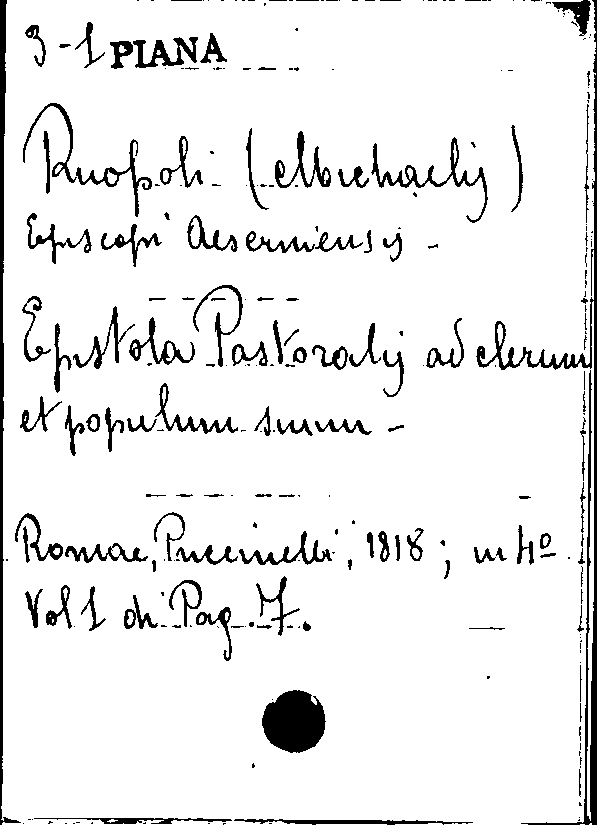 3-1 PIANA
Ruopoli (Michaelis)
Episcopi Aeserniensis -
Epistola Pastoralis ad clerum
et populum suum -
Romae, Puccinelli, 1818; in 4º
Vol 1 di Pag. 7.